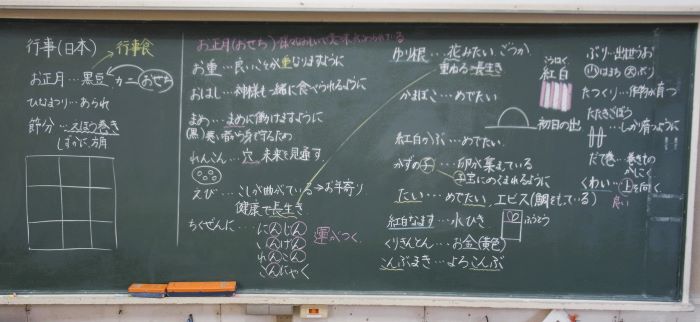 行事(日本) → 行事食
お正月…黒豆 カニ おせち
ひなまつり…あられ
節分…えほう巻き
しずかに、方角
お正月(おせち)
お重…良いことが重なりますように
おはし…神様も一緒に食べられるように
まめ…まめに働けますように
(黒)
れんこん…穴 未来を見通す
えび…こしが曲がっている→お年寄り
健康で長生き
ちくぜんに…にんじん
いんげん
れんこん
こんにゃく
運がつく。
ゆり根…花みたい ごうか
重ねる 長生き
かまぼこ…めでたい
こうはく
紅白
初日の出
紅白かぶ…めでたい
かずの子…卵が集まっている
子宝にめぐまれるように
たい…めでたい エビス(鯛をもしている)
紅白なます…水ひき
くりきんとん…お金(黄色)
こんぶまき…よろこんぶ
ぶり…出世うお
はまち ブリ
たつくり…作物が育つ
たたきごぼう
…しっかり育つように
だて巻…巻きもの
くわい…上を向く
良い